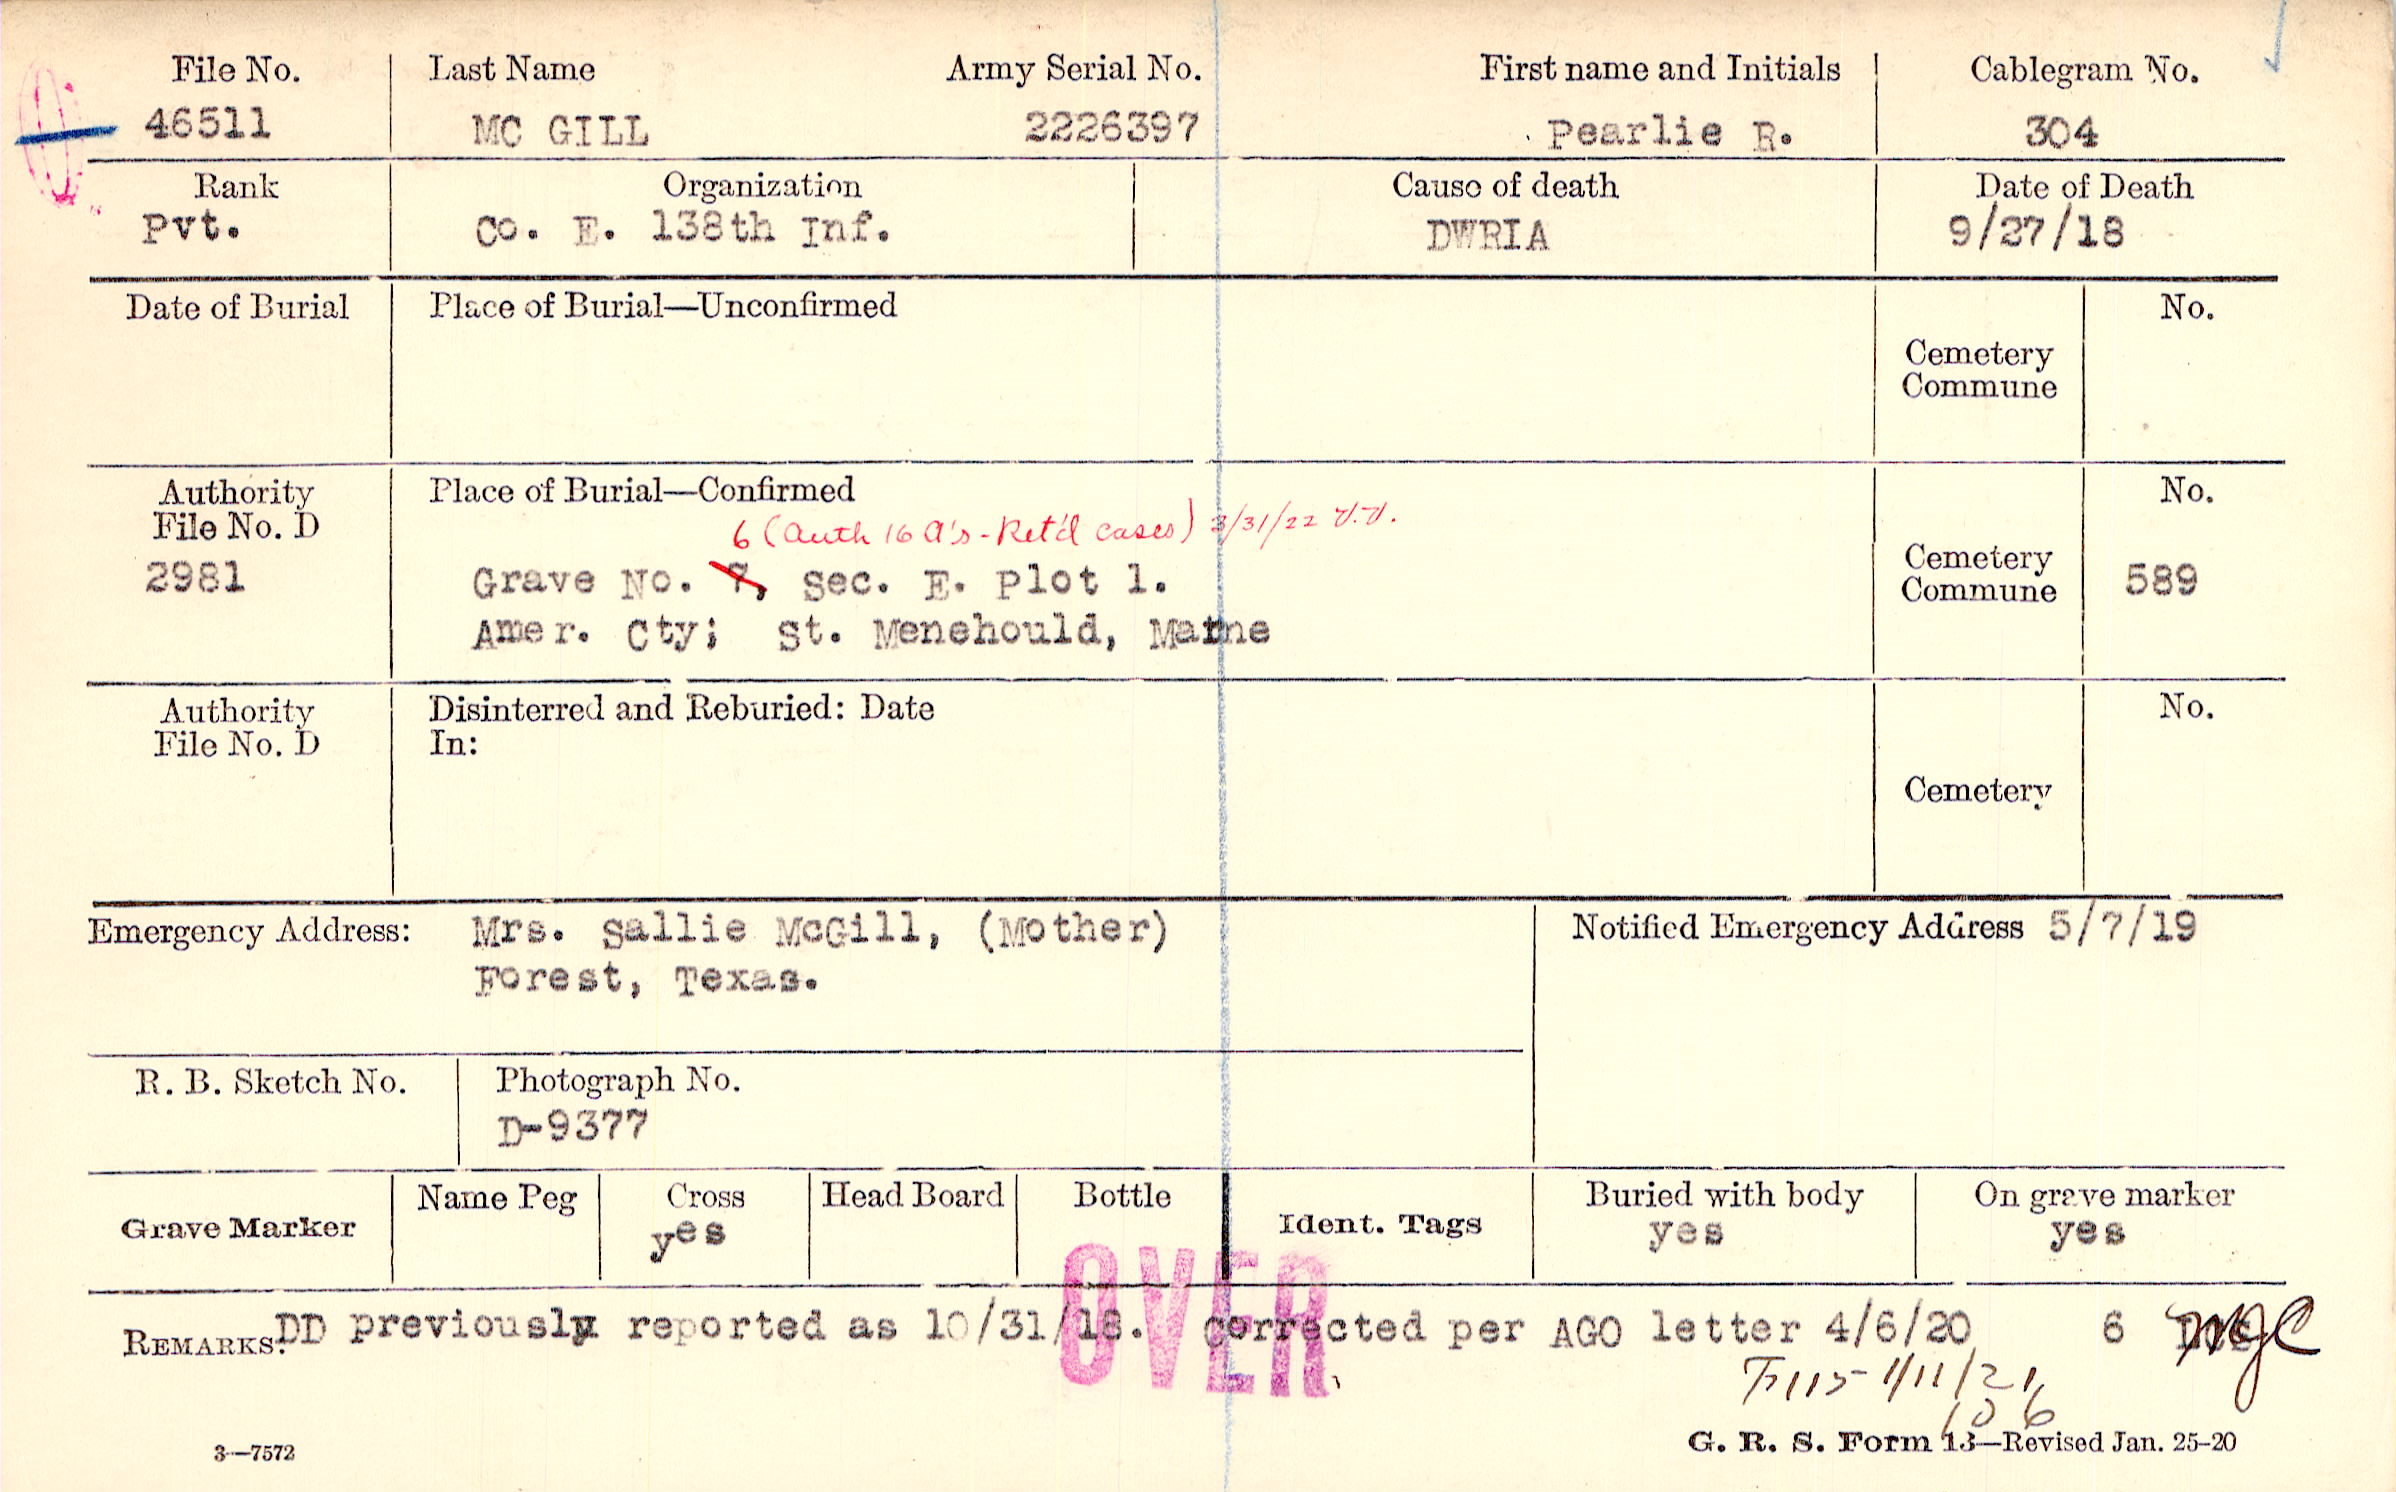 File No. Last Name Army Serial No. First name and Initials Cablegram No.
46511 MC GILL 2226397 Pearlie R. 304
Rank Organization Cause of death Date of Death
Pvt. Co. E. 138th Inf. DWRIA 9/27/18
Date of Burial Place of Burial—Unconfirmed No.
Cemetery
Commune
Authority Place of Burial—Confirmed No.
File No. D 6 (Auth 16 A's - Ret'd cases) 3/31/22
2981 Grave No. 7, Sec. E. Plot 1. Cemetery
Commune 589
Amer. Cty; St. Menehould, Marne
Authority Disinterred and Reburied: Date No.
File No. D In:
Cemetery
Emergency Address: Mrs. Sallie McGill, (Mother) Notified Emergency Address 5/7/19
Forest, Texas.
R. B. Sketch No. Photograph No.
D-9377
Grave Marker Name Peg Cross Head Board Bottle Ident. Tags Buried with body On grave marker
yes yes yes
OVER
REMARKS: DD previously reported as 10/31/18. Corrected per AGO letter 4/6/20 6
1/11/21
3—7572 G. R. S. Form 13—Revised Jan. 25-20